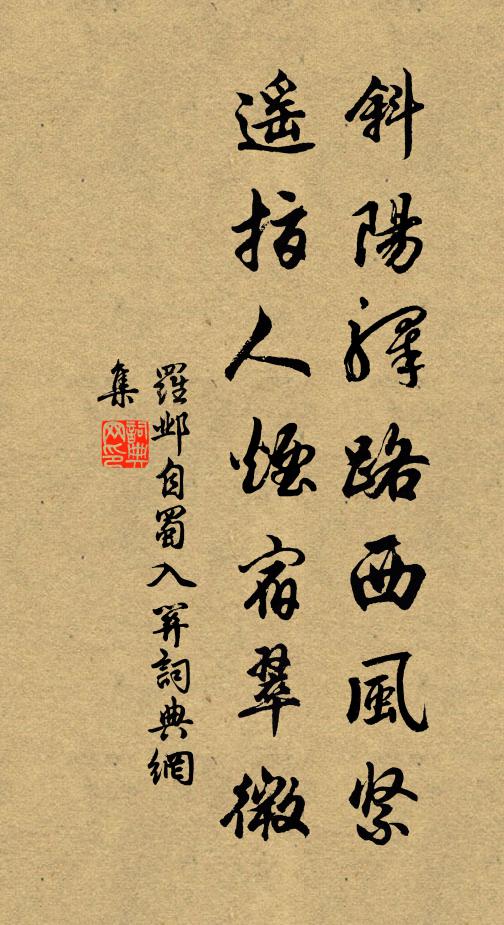 斜陽驛路西風緊
遥指人煙宿翠微
羅鄴自蜀入關詞典網
集
詞典
网印